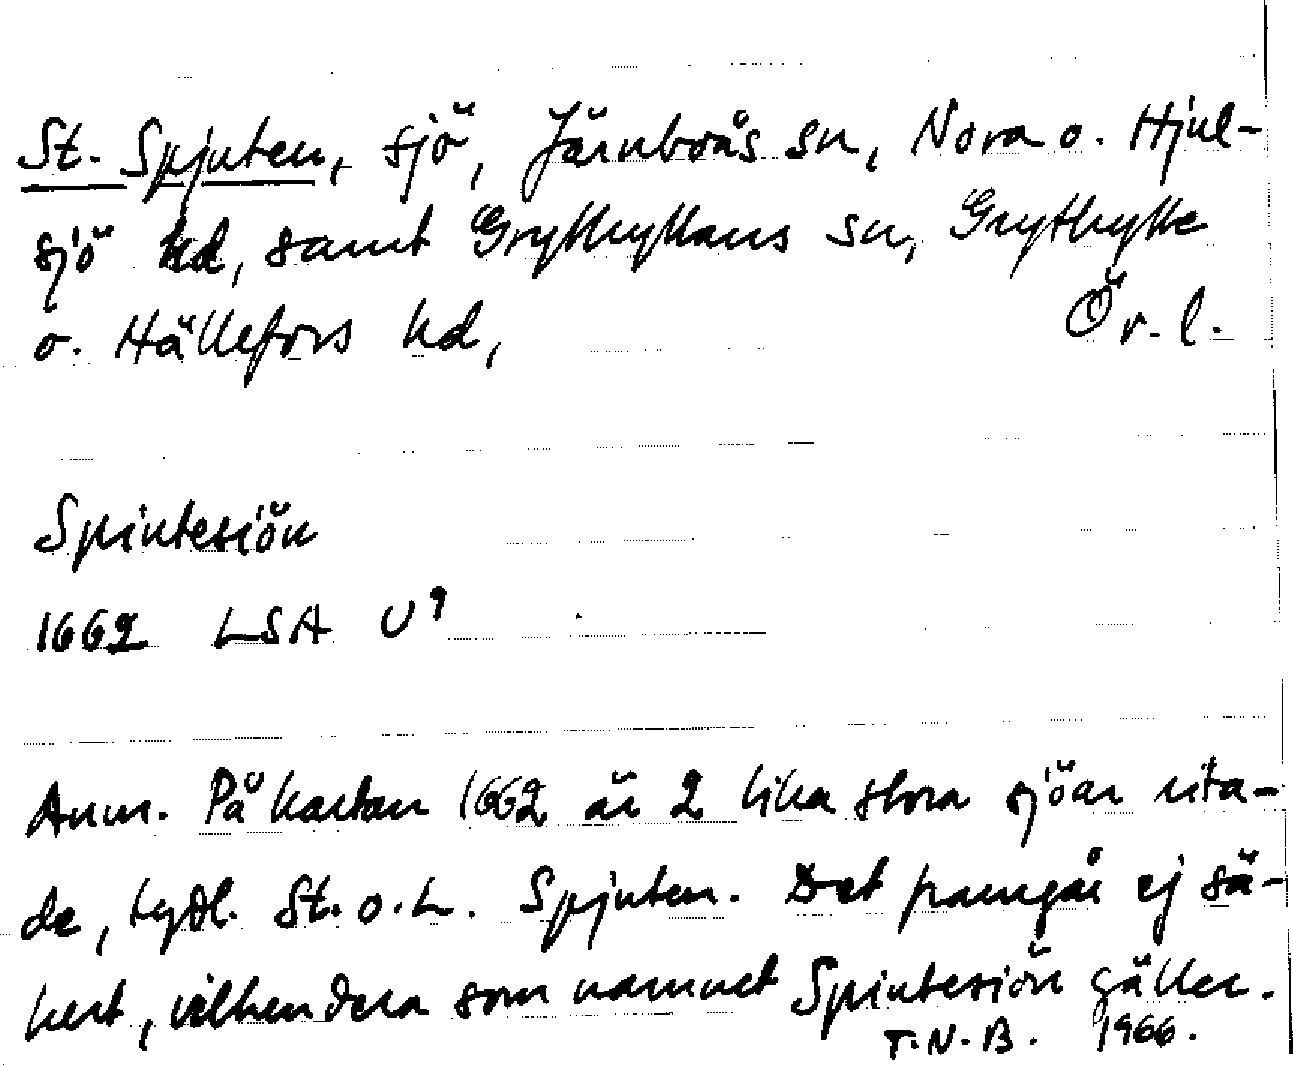 St. Spjuten, sjö, Järnboås sn, Nora o. Hjul-
sjö hd, samt Grythyttans sn, Grythytte
o. Hällefors hd, Ör. l.
Spiutesiön
1662 LSA U⁹
Anm. På kartan 1662 är 2 lika stora sjöar rita-
de, tydl. St. o. L. Spjuten. Det framgår ej sä-
kert, vilkendera som namnet Spiutesiön gäller.
T.N.B. 1966.